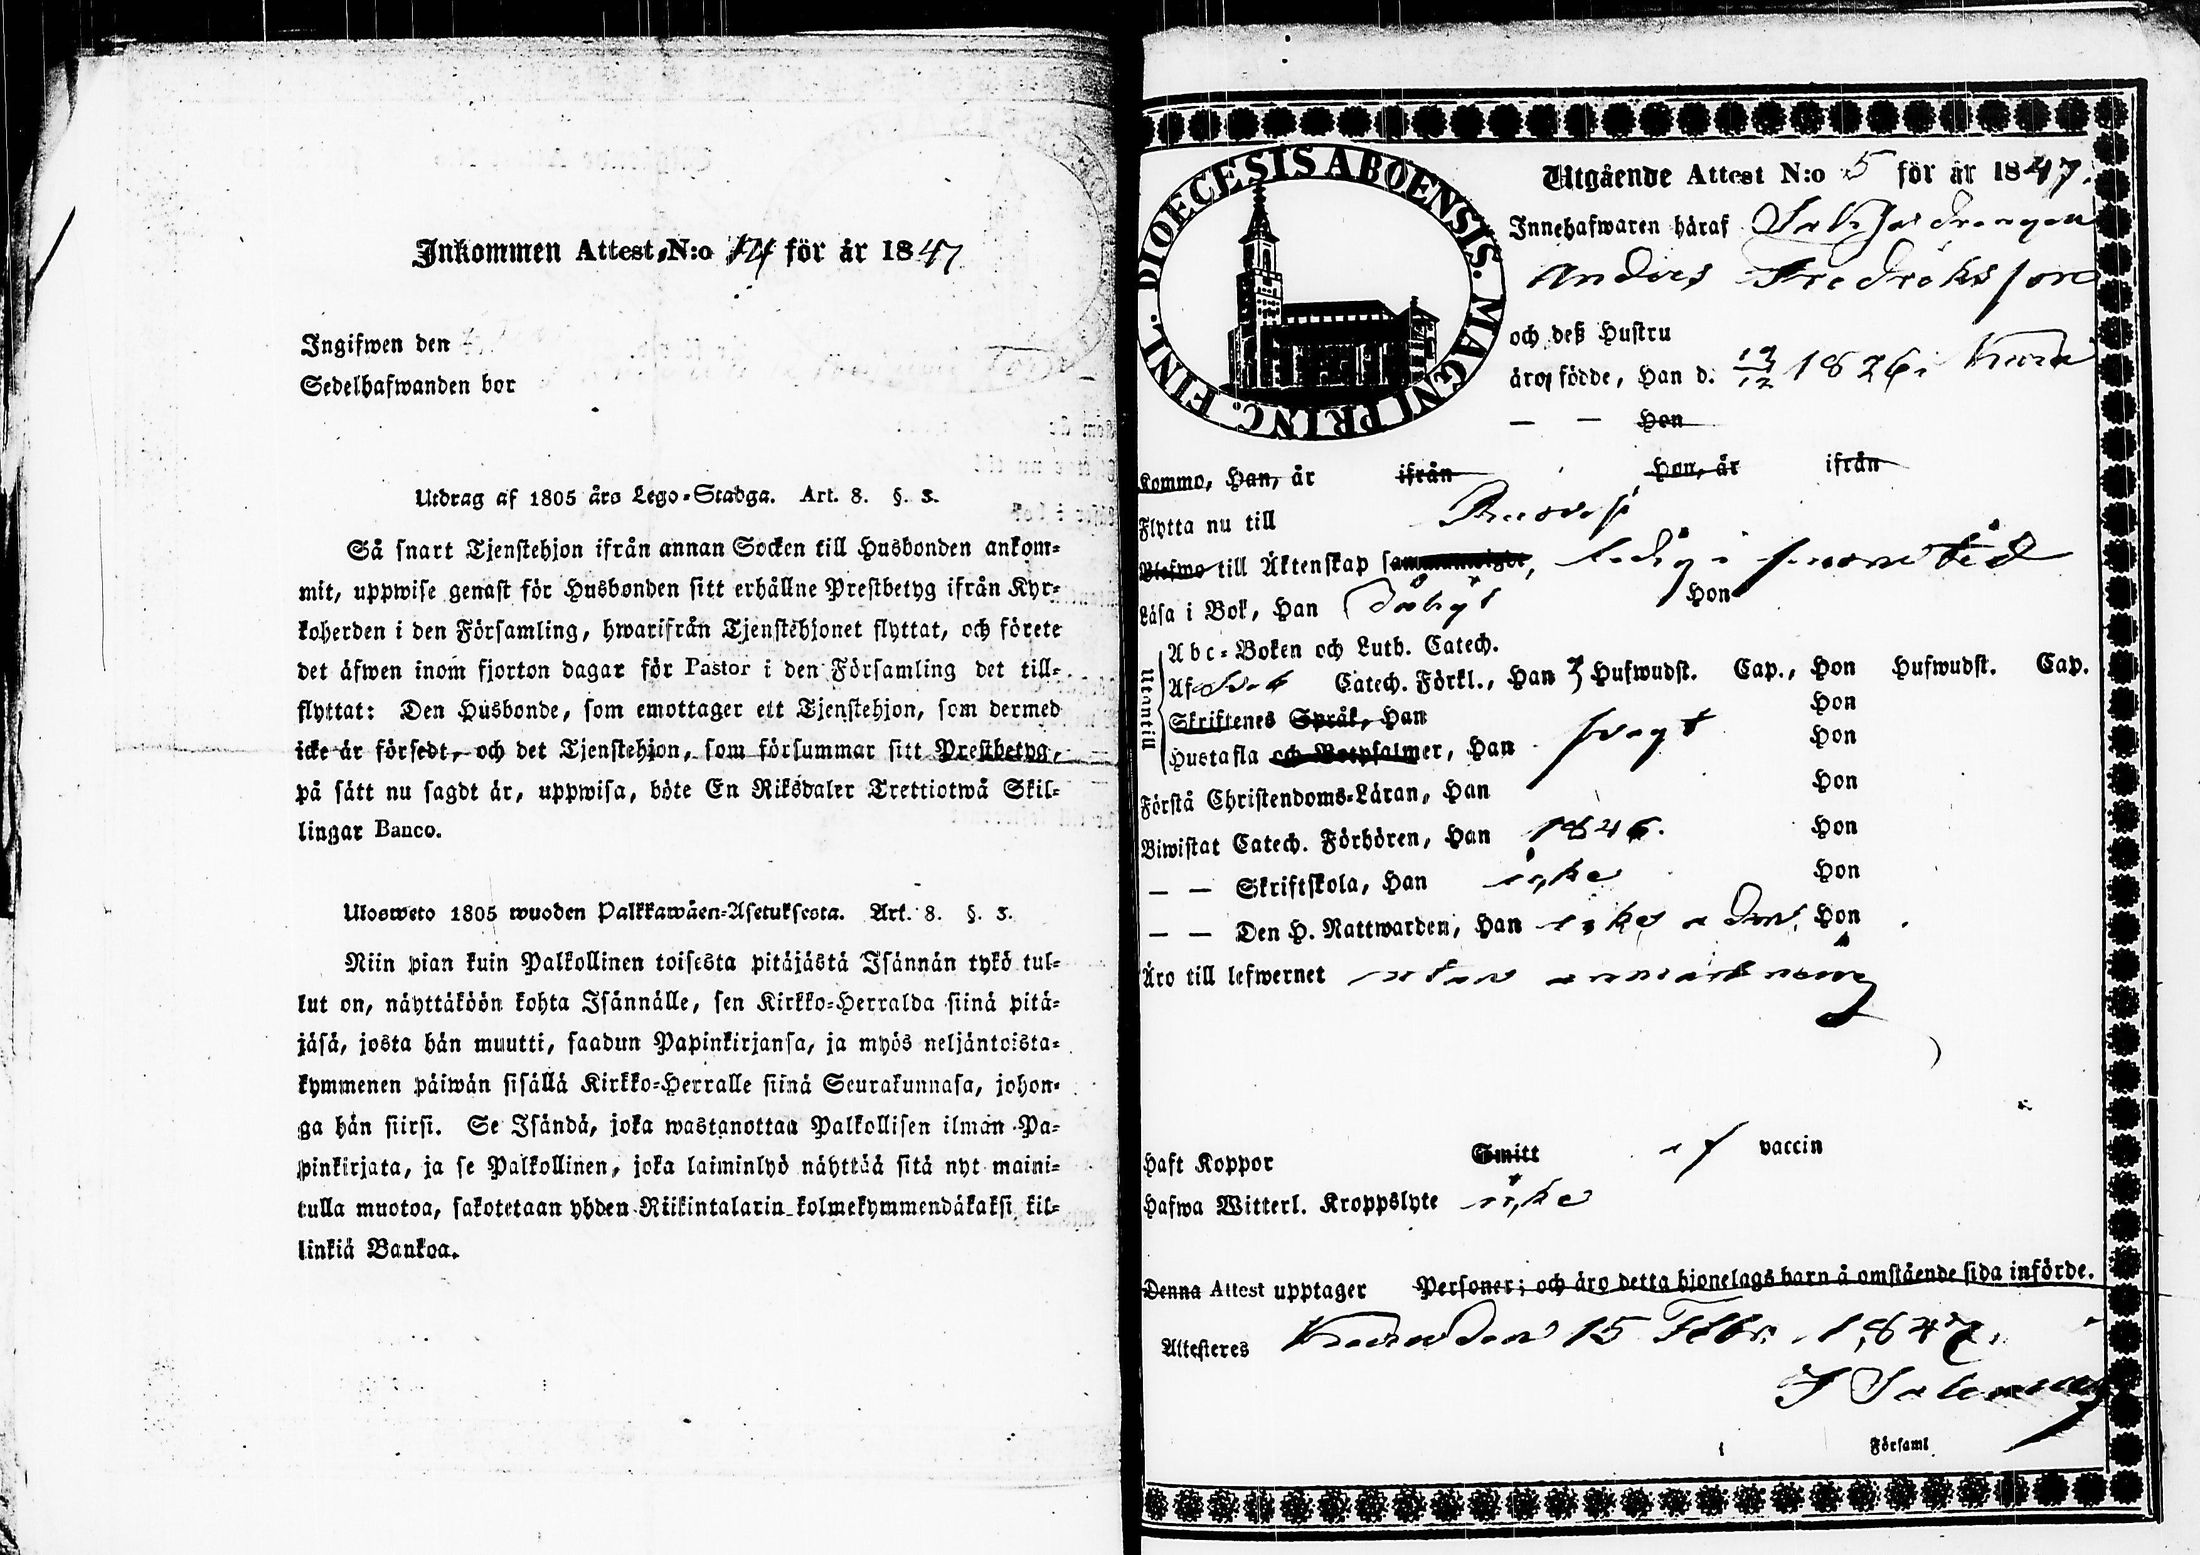 Inkommen Attest N:o 14 för år 1847
Ingifwen den
Sedelhafwanden bor
Utdrag af 1805 års Lego-Stadga. Art. 8. §. 3.
Så snart Tjenstehjon ifrån annan Socken till Husbonden ankom-
mit, uppwise genast för Husbonden sitt erhållne Prestbetyg ifrån Kyr-
koherden i den Församling, hwarifrån Tjenstehjonet flyttat, och förete
det äfwen inom fjorton dagar för Pastor i den Församling det till-
flyttat: Den Husbonde, som emottager ett Tjenstehjon, som dermed
icke är försedt, och det Tjenstehjon, som försummar sitt Prestbetyg,
på sätt nu sagdt är, uppwisa, böte En Riksdaler Trettiotwå Skil-
lingar Banco.
Ulosweto 1805 wuoden Palkkawäen-Asetuksesta. Art. 8. §. 3.
Niin pian kuin Palkollinen toisesta pitäjästä Isännän tykö tul-
lut on, näyttäköön kohta Isännälle, sen Kirkko-Herralda siinä pitä-
jäsä, josta hän muutti, saadun Papinkirjansa, ja myös neljäntoista-
kymmenen päiwän sisällä Kirkko-Herralle siinä Seurakunnasa, johon-
ga hän siirsi. Se Isändä, joka wastanottaa Palkollisen ilman Pa-
pinkirjata, ja se Palkollinen, joka laiminlyö näyttää sitä nyt maini-
tulla muotoa, sakotetaan yhden Riikintalarin kolmekymmendäkaksi kil-
linkiä Bankoa.
DIOECESIS ABOENSIS. MAGNI PRINC. FINL.
Utgående Attest N:o 5 för år 1847.
Innehafwaren häraf
Anders Fredriksson
och deß Hustru
äro födde, Han d. 1826 i
— — Hon
Komma, Han, år ifrån Hon, år ifrån
Flytta nu till
Blefwo till Äktenskap sammanwigde, ledig i
Läsa i Bok, Han Hon
Utantill
Abc-Boken och Luth. Catech.
Af Catech. Förkl., Han 3 Hufwudst. Cap., Hon Hufwudst. Cap.
Skriftenes Språk, Han Hon
Hustafla och Botpsalmer, Han svagt Hon
Förstå Christendoms-Läran, Han Hon
Biwistat Catech. Förhören, Han 1846. Hon
— — Skriftskola, Han icke Hon
— — Den H. Nattwarden, Han icke Hon
Äro till lefwernet utan anmärkning
Haft Koppor Smitt af vaccin
Hafwa Witterl. Kroppslyte icke
Denna Attest upptager Personer; och äro detta hjonelags barn å omstående sida införde.
Attesteres den 15 Febr. 1847.
i Församl.